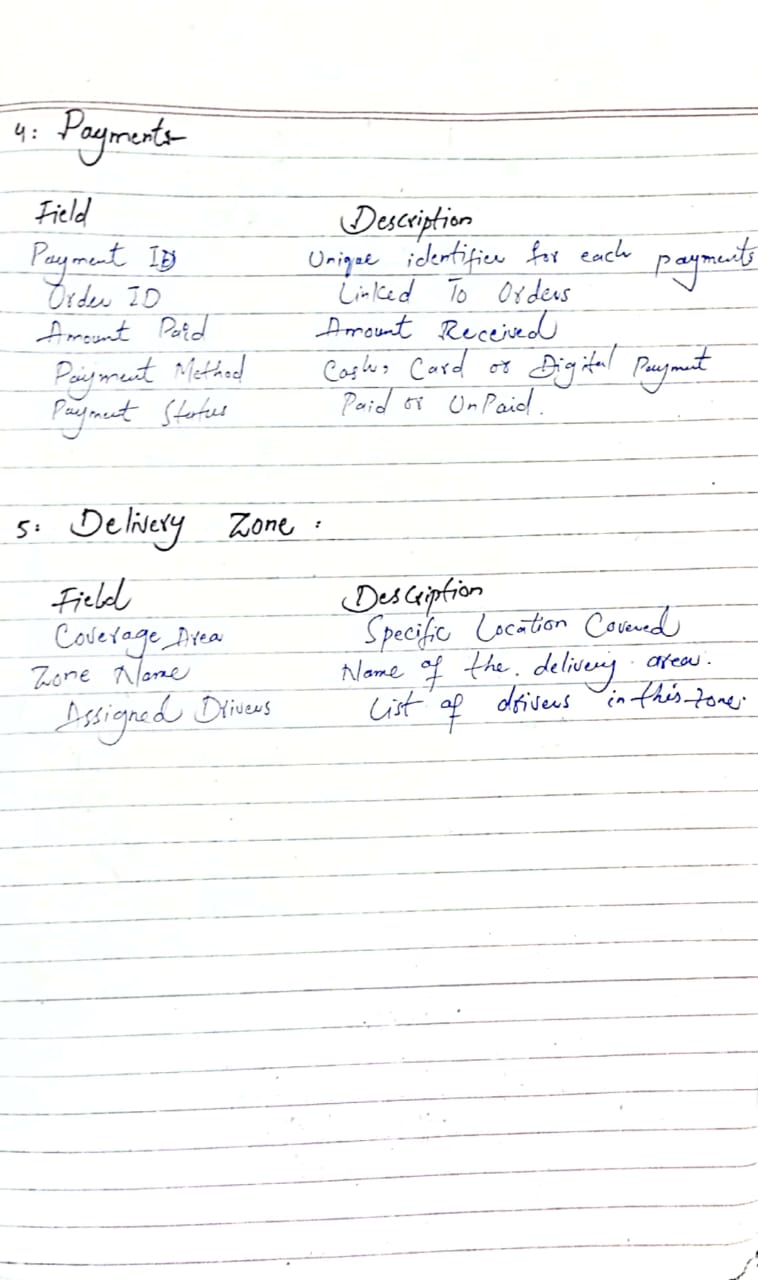 4: Payments
Field Description
Payment ID Unique identifier for each payments
Order ID Linked To Orders
Amount Paid Amount Received
Payment Method Cash, Card or Digital Payment
Payment Status Paid or UnPaid.
5: Delivery Zone :
Field Description
Coverage Area Specific Location Covered
Zone Name Name of the delivery area.
Assigned Drivers List of drivers in this zone.